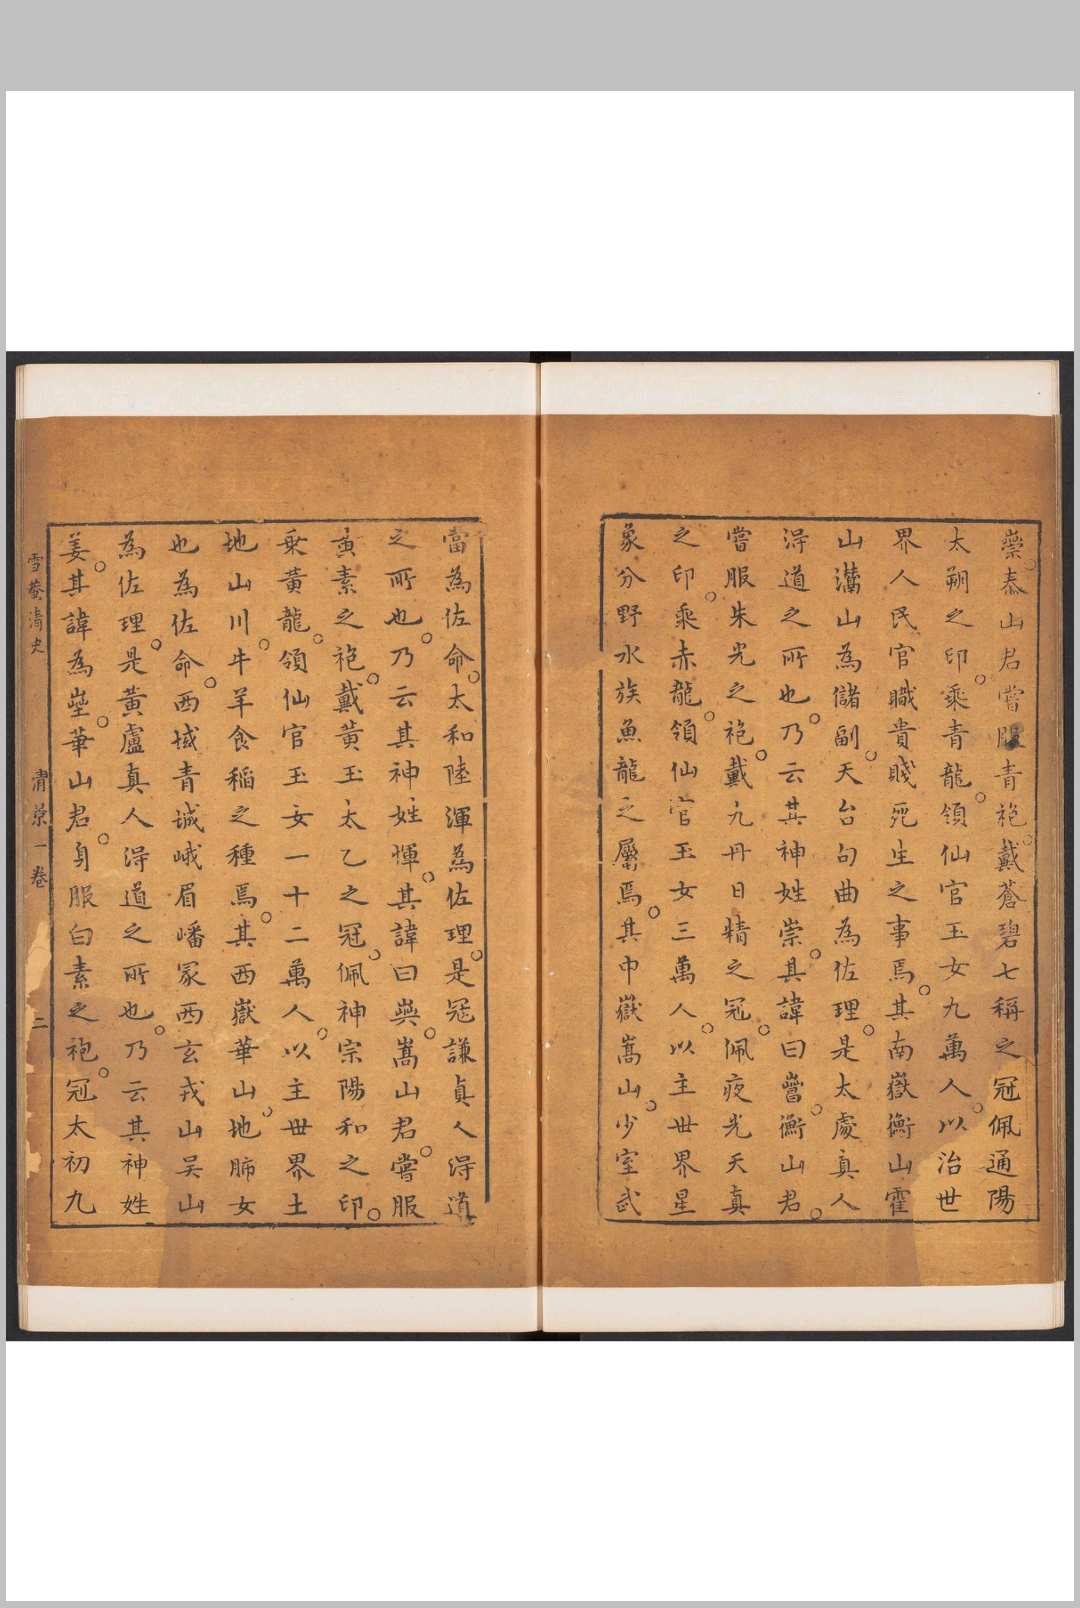 崇泰山君嘗服青袍戴蒼碧七稱之冠佩通陽
太朔之印乘青龍領仙官玉女九萬人以治世
界人民官職貴賤死生之事焉其南嶽衡山霍
山灊山為儲副天台句曲為佐理是太處真人
淂道之所也乃云其神姓崇其諱曰嘗衡山君
嘗服朱光之袍戴九丹日精之冠佩夜光天真
之印乘赤龍領仙官玉女三萬人以主世界星
象分野水族魚龍之屬焉其中嶽嵩山少室武
當為佐命太和陸渾為佐理是冦謙真人淂道
之所也乃云其神姓惲其諱曰與嵩山君嘗服
黄素之袍戴黄玉太乙之冠佩神宗陽和之印
乗黄龍領仙官玉女一十二萬人以主世界土
地山川牛羊食稻之種焉其西嶽華山地肺女
也為佐命西域青城峨眉嶓冢西玄戎山吴山
為佐理是黄盧真人淂道之所也乃云其神姓
姜其諱為壘華山君身服白素之袍冠太初九
雪菴清史　清景一卷　二